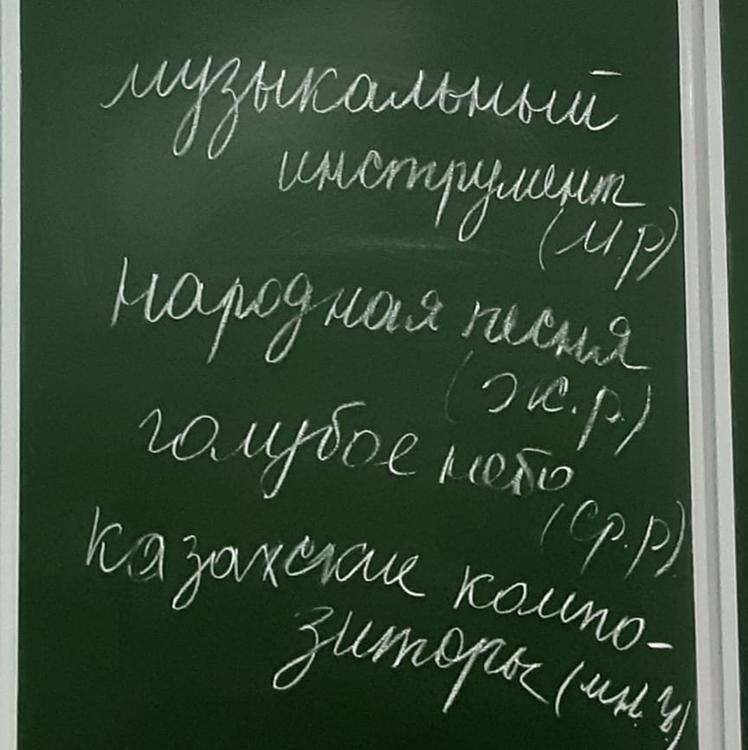 музыкальный
инструмент
(м.р)
народная песня
(ж.р.)
голубое небо
(ср.р)
казахские компо-
зиторы (мн.ч)